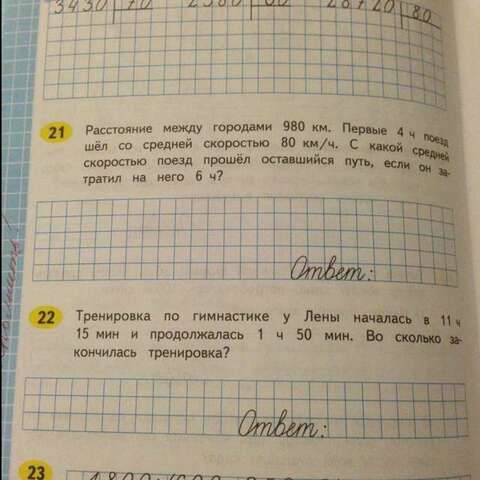 3430 70 2380 60 28720 80
21
Расстояние между городами 980 км. Первые 4 ч поезд
шёл со средней скоростью 80 км/ч. С какой средней
скоростью поезд прошёл оставшийся путь, если он за-
тратил на него 6 ч?
Ответ:
22
Тренировка по гимнастике у Лены началась в 11 ч
15 мин и продолжалась 1 ч 50 мин. Во сколько за-
кончилась тренировка?
Ответ:
23